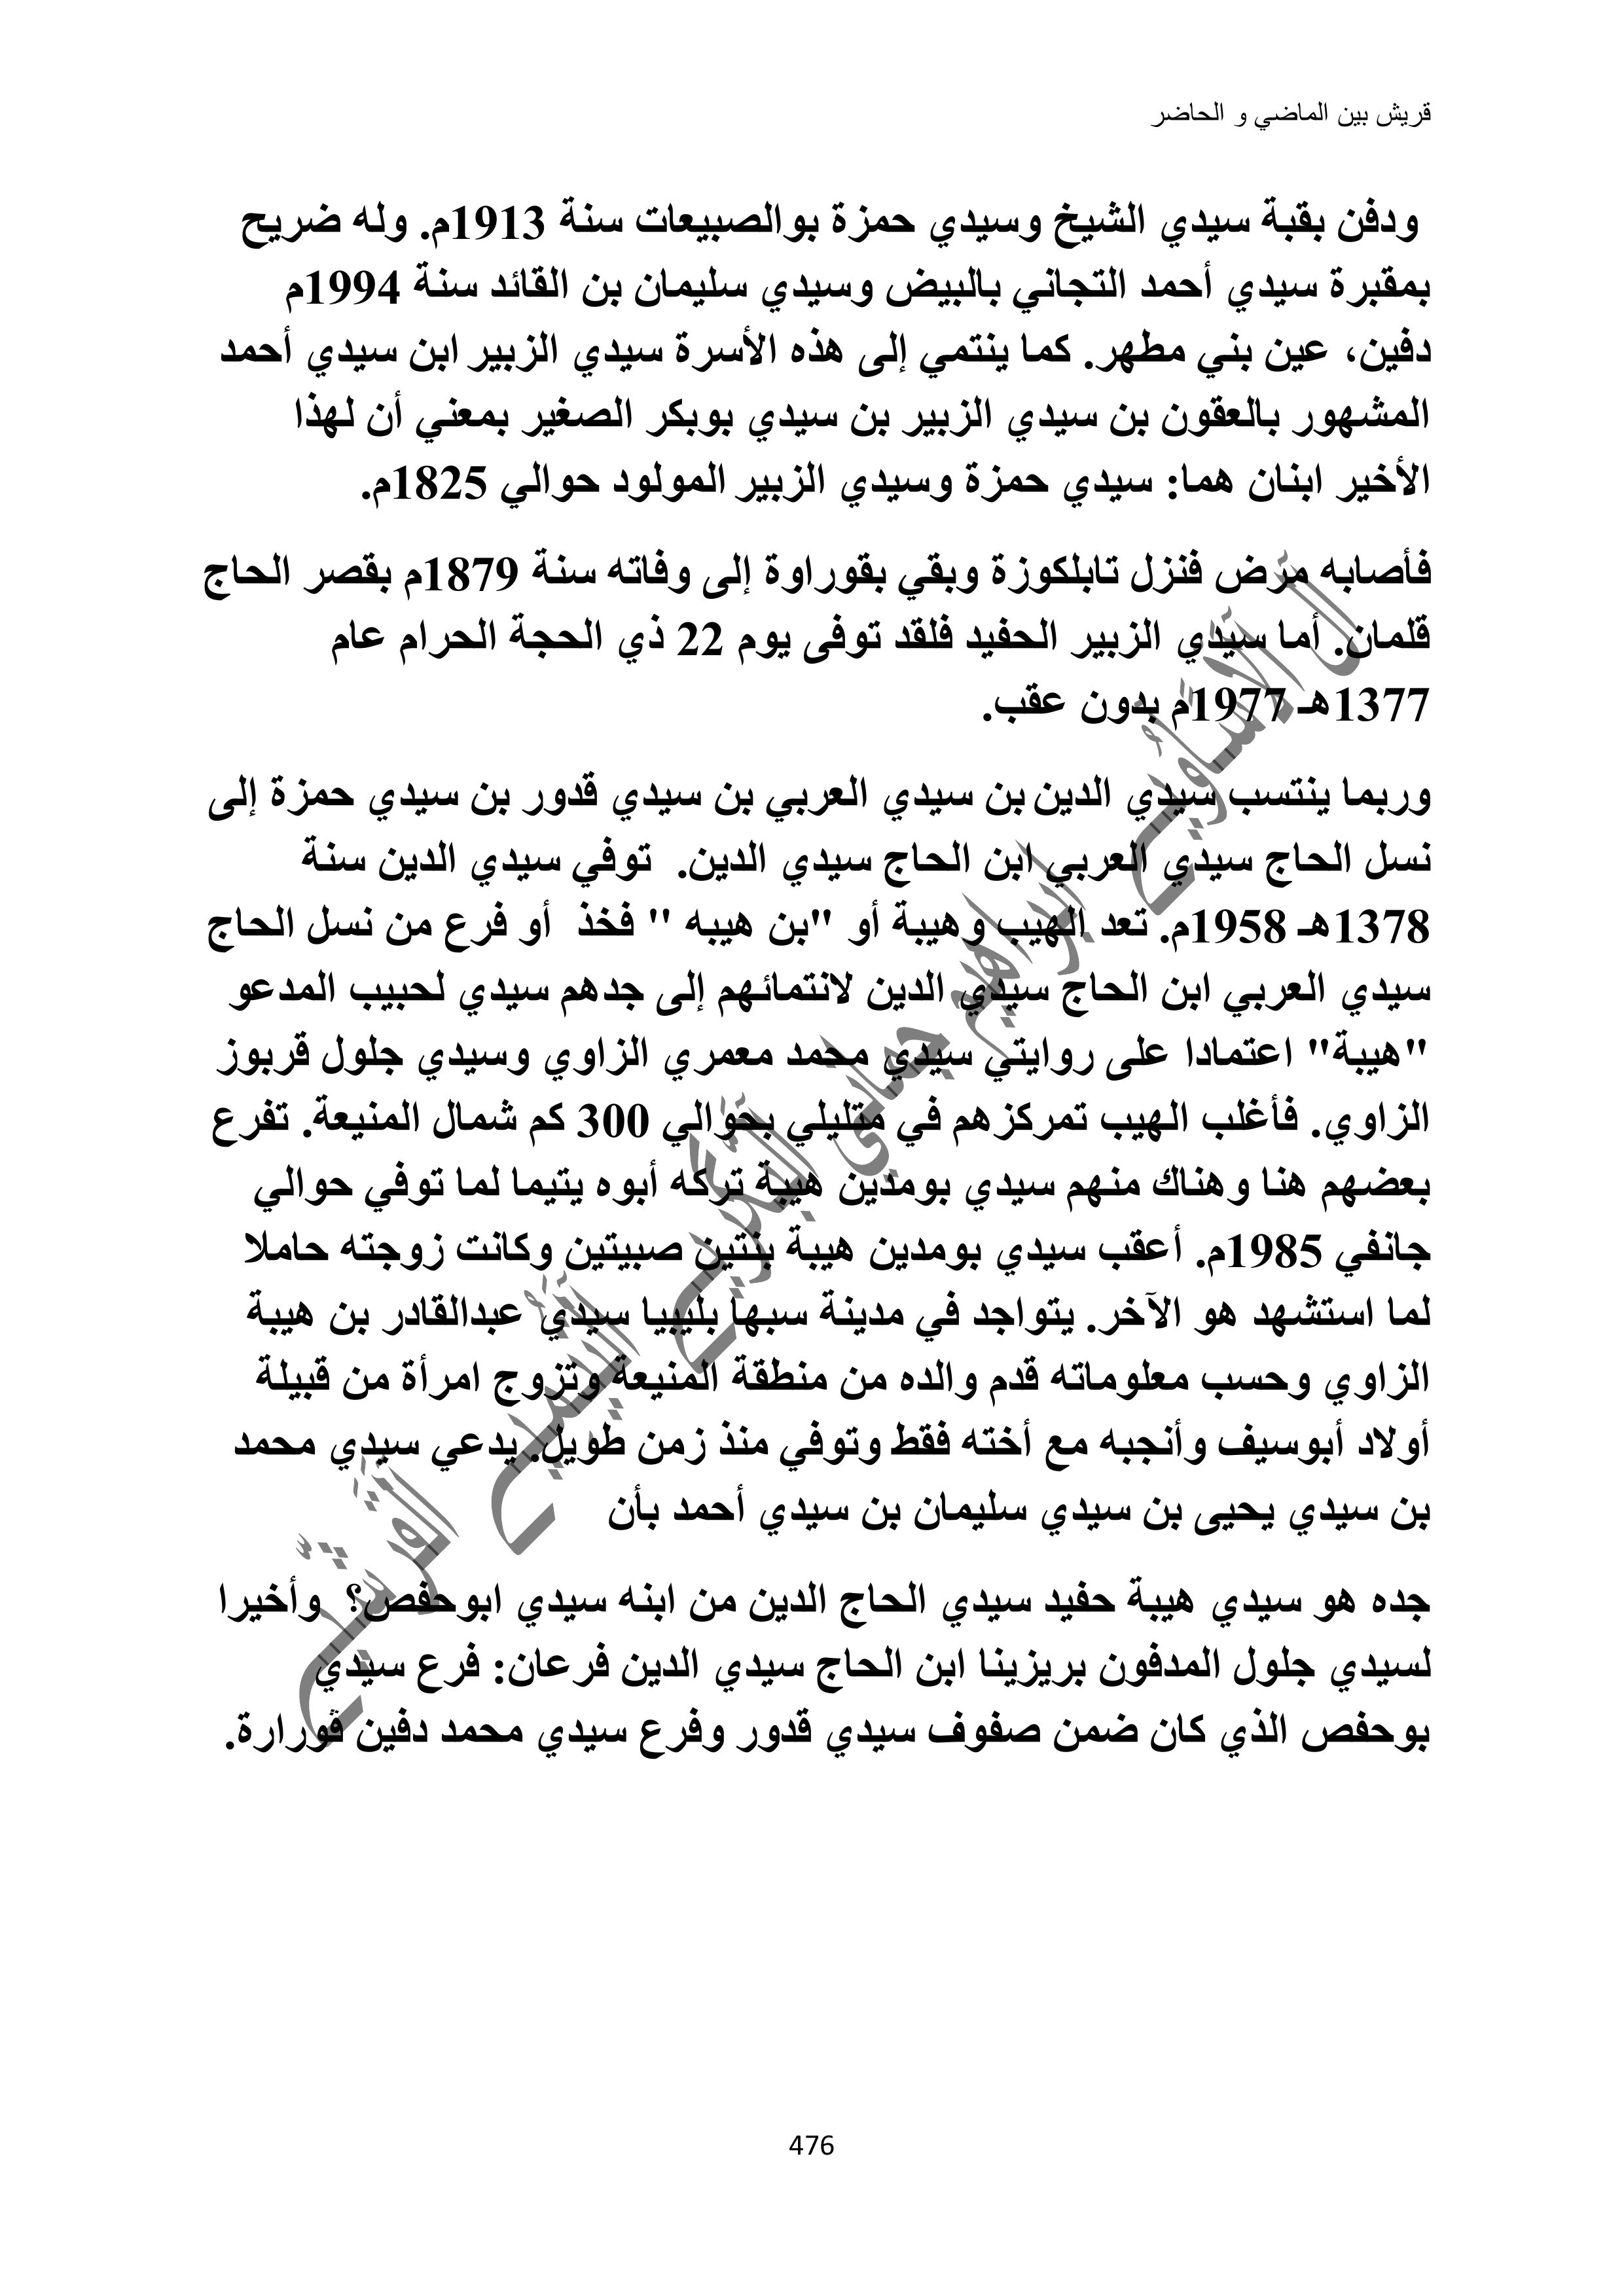 قريش بين الماضي و الحاضر
ودفن بقبة سيدي الشيخ وسيدي حمزة بوالصبيعات سنة 1913م. وله ضريح
بمقبرة سيدي أحمد التجاني بالبيض وسيدي سليمان بن القائد سنة 1994م
دفين، عين بني مطهر. كما ينتمي إلى هذه الأسرة سيدي الزبير ابن سيدي أحمد
المشهور بالعقون بن سيدي الزبير بن سيدي بوبكر الصغير بمعني أن لهذا
الأخير ابنان هما: سيدي حمزة وسيدي الزبير المولود حوالي 1825م.
فأصابه مرض فنزل تابلكوزة وبقي بقوراوة إلى وفاته سنة 1879م بقصر الحاج
قلمان. أما سيدي الزبير الحفيد فلقد توفى يوم 22 ذي الحجة الحرام عام
1377هـ 1977م بدون عقب.
وربما ينتسب سيدي الدين بن سيدي العربي بن سيدي قدور بن سيدي حمزة إلى
نسل الحاج سيدي العربي ابن الحاج سيدي الدين. توفي سيدي الدين سنة
1378هـ 1958م. تعد الهيب وهيبة أو "بن هيبه " فخذ أو فرع من نسل الحاج
سيدي العربي ابن الحاج سيدي الدين لانتمائهم إلى جدهم سيدي لحبيب المدعو
"هيبة" اعتمادا على روايتي سيدي محمد معمري الزاوي وسيدي جلول قربوز
الزاوي. فأغلب الهيب تمركزهم في متليلي بحوالي 300 كم شمال المنيعة. تفرع
بعضهم هنا وهناك منهم سيدي بومدين هيبة تركه أبوه يتيما لما توفي حوالي
جانفي 1985م. أعقب سيدي بومدين هيبة بنتين صبيتين وكانت زوجته حاملا
لما استشهد هو الآخر. يتواجد في مدينة سبها بليبيا سيدي عبدالقادر بن هيبة
الزاوي وحسب معلوماته قدم والده من منطقة المنيعة وتزوج امرأة من قبيلة
أولاد أبوسيف وأنجبه مع أخته فقط وتوفي منذ زمن طويل. يدعي سيدي محمد
بن سيدي يحيى بن سيدي سليمان بن سيدي أحمد بأن
جده هو سيدي هيبة حفيد سيدي الحاج الدين من ابنه سيدي ابوحفص؟ وأخيرا
لسيدي جلول المدفون بريزينا ابن الحاج سيدي الدين فرعان: فرع سيدي
بوحفص الذي كان ضمن صفوف سيدي قدور وفرع سيدي محمد دفين ڤورارة.
476